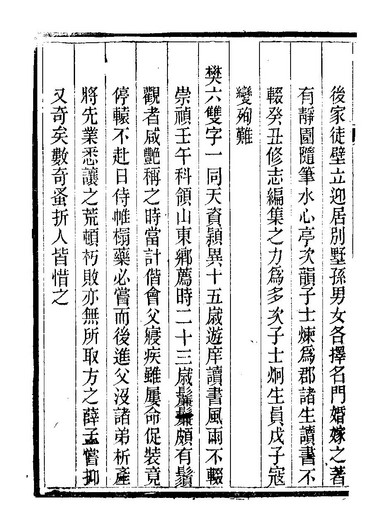 後家徒壁立迎居別墅孫男女各擇名門婚嫁之著
有靜園隨筆水心亭次韻子士煉爲郡諸生讀書不
輟癸丑修志編集之力爲多次子士炯生員戊子寇
變殉難
樊六雙字一同天資穎異十五歲遊庠讀書風雨不輟
崇禎壬午科領山東鄉薦時二十三歲鬚髯頗有鬚
觀者咸艷稱之時當計偕會父寢疾雖屢命促裝竟
停轅不赴日侍帷榻藥必嘗而後進父沒諸弟析產
將先業悉讓之荒頓朽敗亦無所取方之薛孟嘗抑
又奇矣數奇蚤折人皆惜之